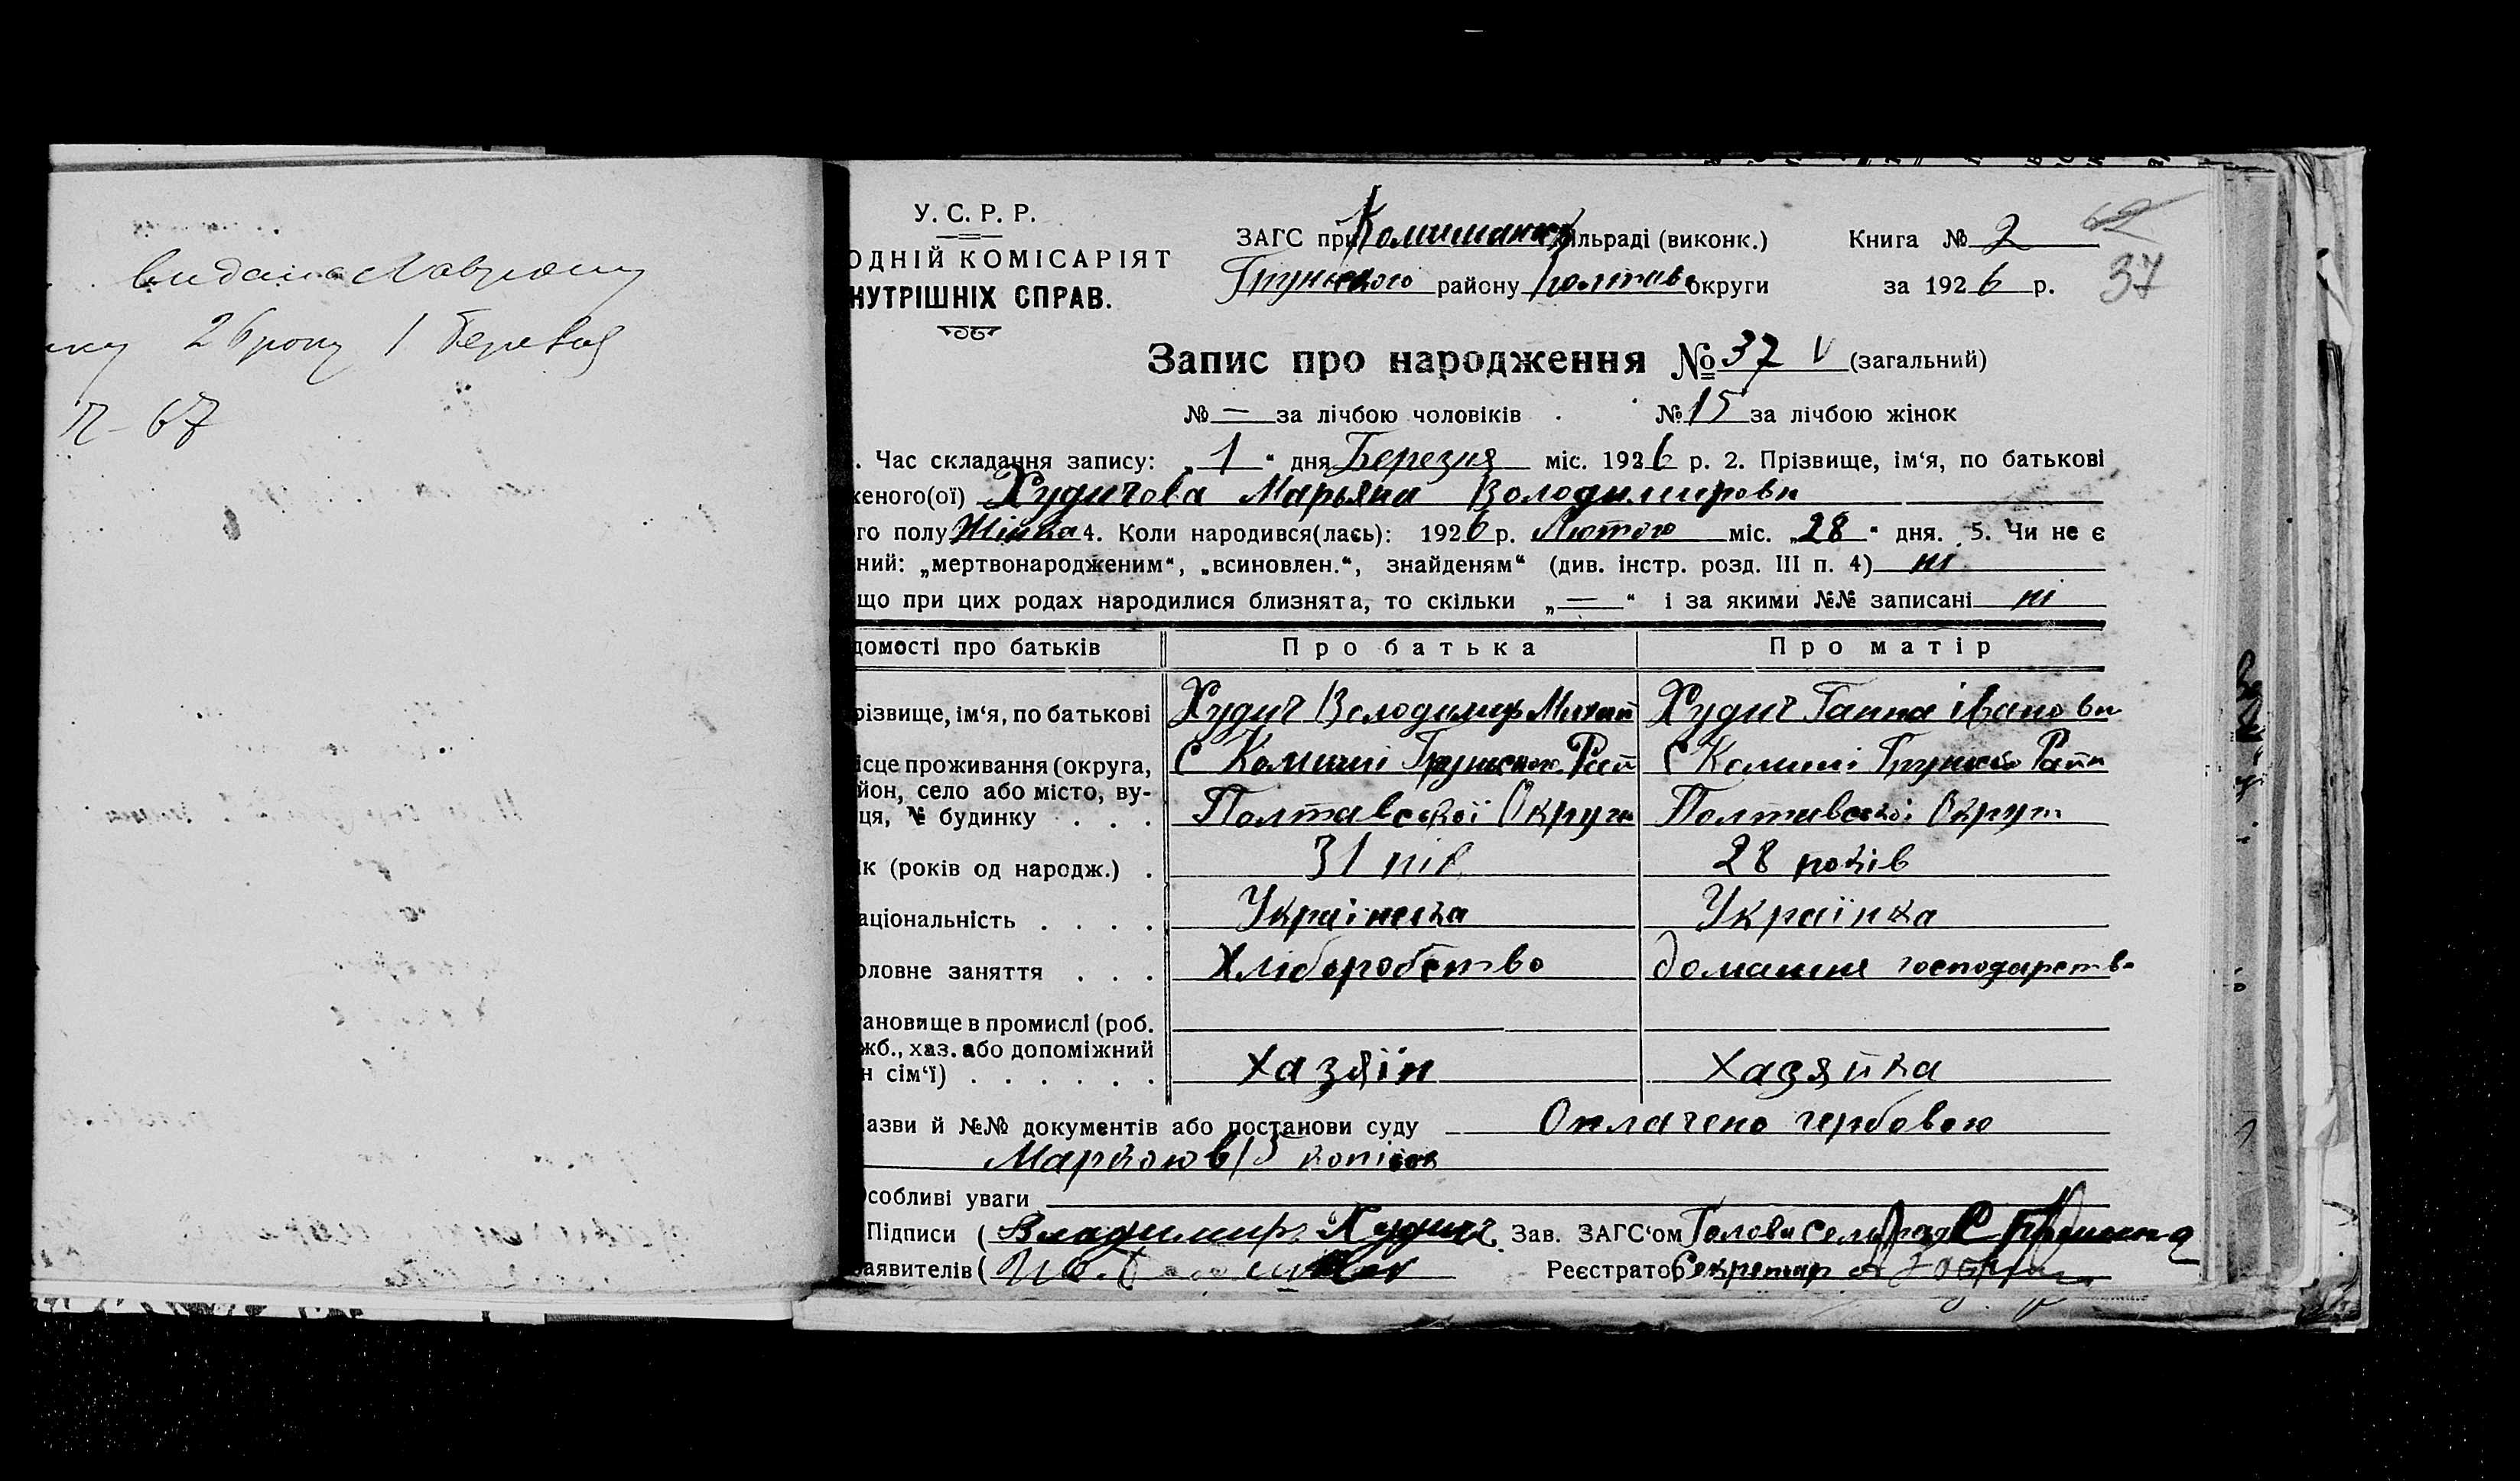 видана
26 року 1 березня
67
У. С. Р. Р.
ОДНІЙ КОМІСАРІЯТ
НУТРІШНІХ СПРАВ.
ЗАГС при льраді (виконк.)
Грунського району Полтавс округи
Книга № 2
за 1926 р.
62
37
Запис про народження № 37 V (загальний)
№ — за лічбою чоловіків . № 15 за лічбою жінок
. Час складання запису: „1“ дня Березня міс. 1926 р. 2. Прізвище, ім‘я, по батькові
женого(ої) Худичова Марьяна Володимировн
го полу Жінка 4. Коли народився(лась): 1926 р. Лютого міс. „28“ дня. 5. Чи не є
ний: „мертвонародженим“, „всиновлен.“, знайденям“ (див. інстр. розд. III п. 4) ні
що при цих родах народилися близнята, то скільки „—“ і за якими №№ записані ні
домості про батьків Про батька Про матір
різвище, ім‘я, по батькові Худич Володимир Михай Худич Ганна Івановн
ісце проживання (округа, С Комиші Грунськ. Рай С Комиші Грунсько Райн
йон, село або місто, ву-
ця, № будинку . . . Полтавської Округи Полтавської Округи
ік (років од народж.) . 31 рік 28 років
аціональність . . . . Українська Українка
оловне заняття . . . Хліборобство домашнє господарство
тановище в промислі (роб.
жб., хаз. або допоміжний
н сім‘ї) . . . . . . Хазяїн Хазяйка
азви й №№ документів або постанови суду Оплачено гербовою
Маркою в 15 копійок
собливі уваги
Підписи ( Владимир Худич Зав. ЗАГС‘ом Голова СельРад
аявителів ( Реєстратор Секретар